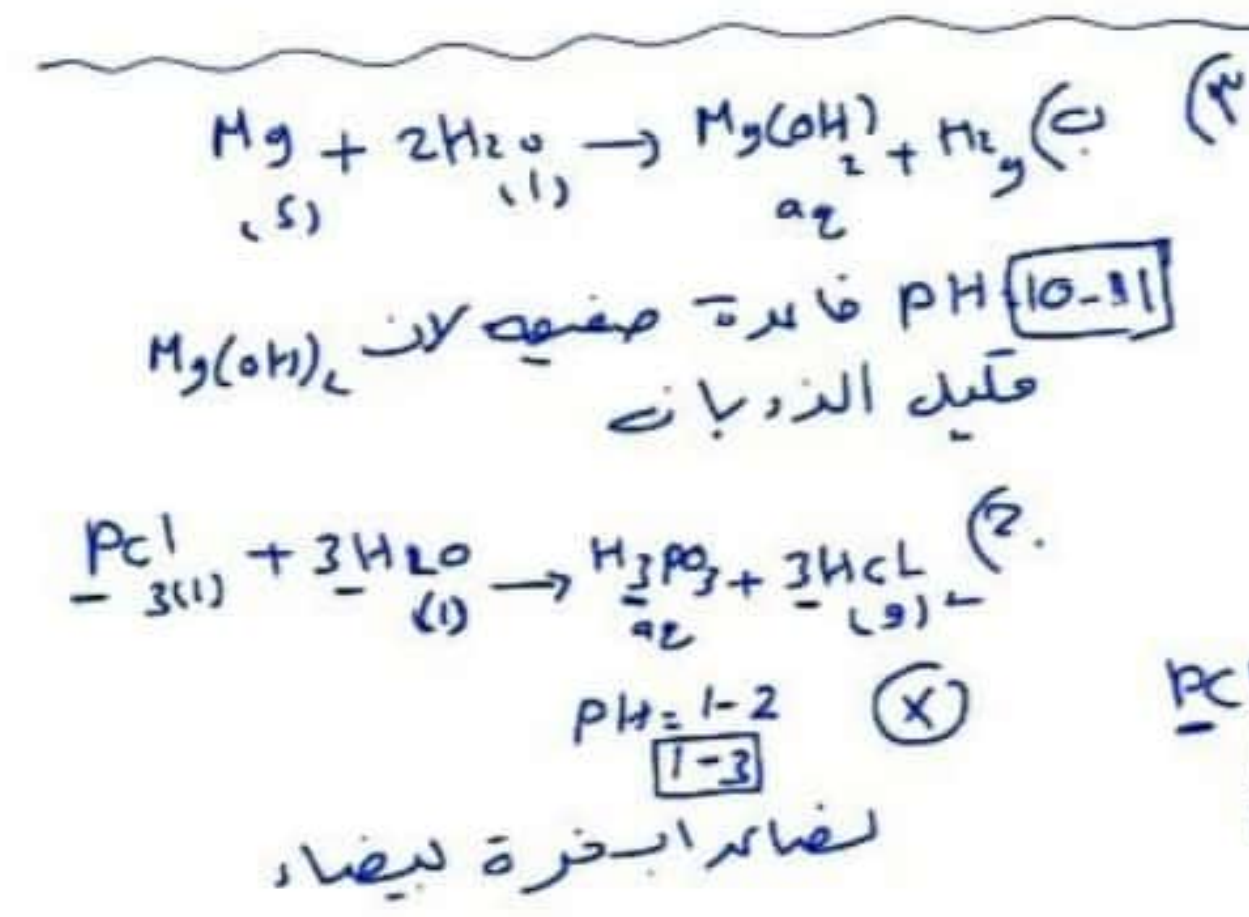 (٣ ب) Mg(s) + 2H2O(l) → Mg(OH)2 aq + H2 g
pH 10-11 قاعدة ضعيفه لان Mg(OH)2
قليل الذوبان
ج) PCl3(l) + 3H2O(l) → H3PO3 aq + 3HCl(g)
PH = 1-2 X
1-3
PC
تصاعد ابخرة بيضاء